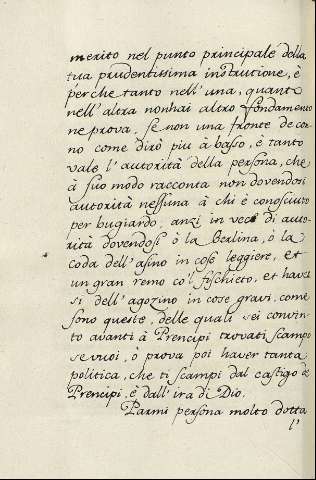 merito nel punto principale della
tua prudentissima instrutione, è
perche tanto nell'una, quanto
nell'altra non hai altro fondamento
ne prova, se non una fronte de cor
no come dirò piu à basso, è tanto
vale l'autorità della persona, che
à suo modo racconta non dovendosi
autorità nessuna à chi è conosciuto
per bugiardo, anzi in vece di auto
rità dovendosi ò la Berlina, ò la
coda dell'asino in cose leggiere, et
un gran remo co'l fischieto, et haver
si dell'agozino in cose gravi, come
sono queste, delle quali sei convin
to avanti à Prencipi trovati scampo
se vuoi, ò prova poi haver tanta
politica, che ti scampi dal castigo de
Prencipi, è dall'ira di Dio.
Parmi persona molto dotta
l'